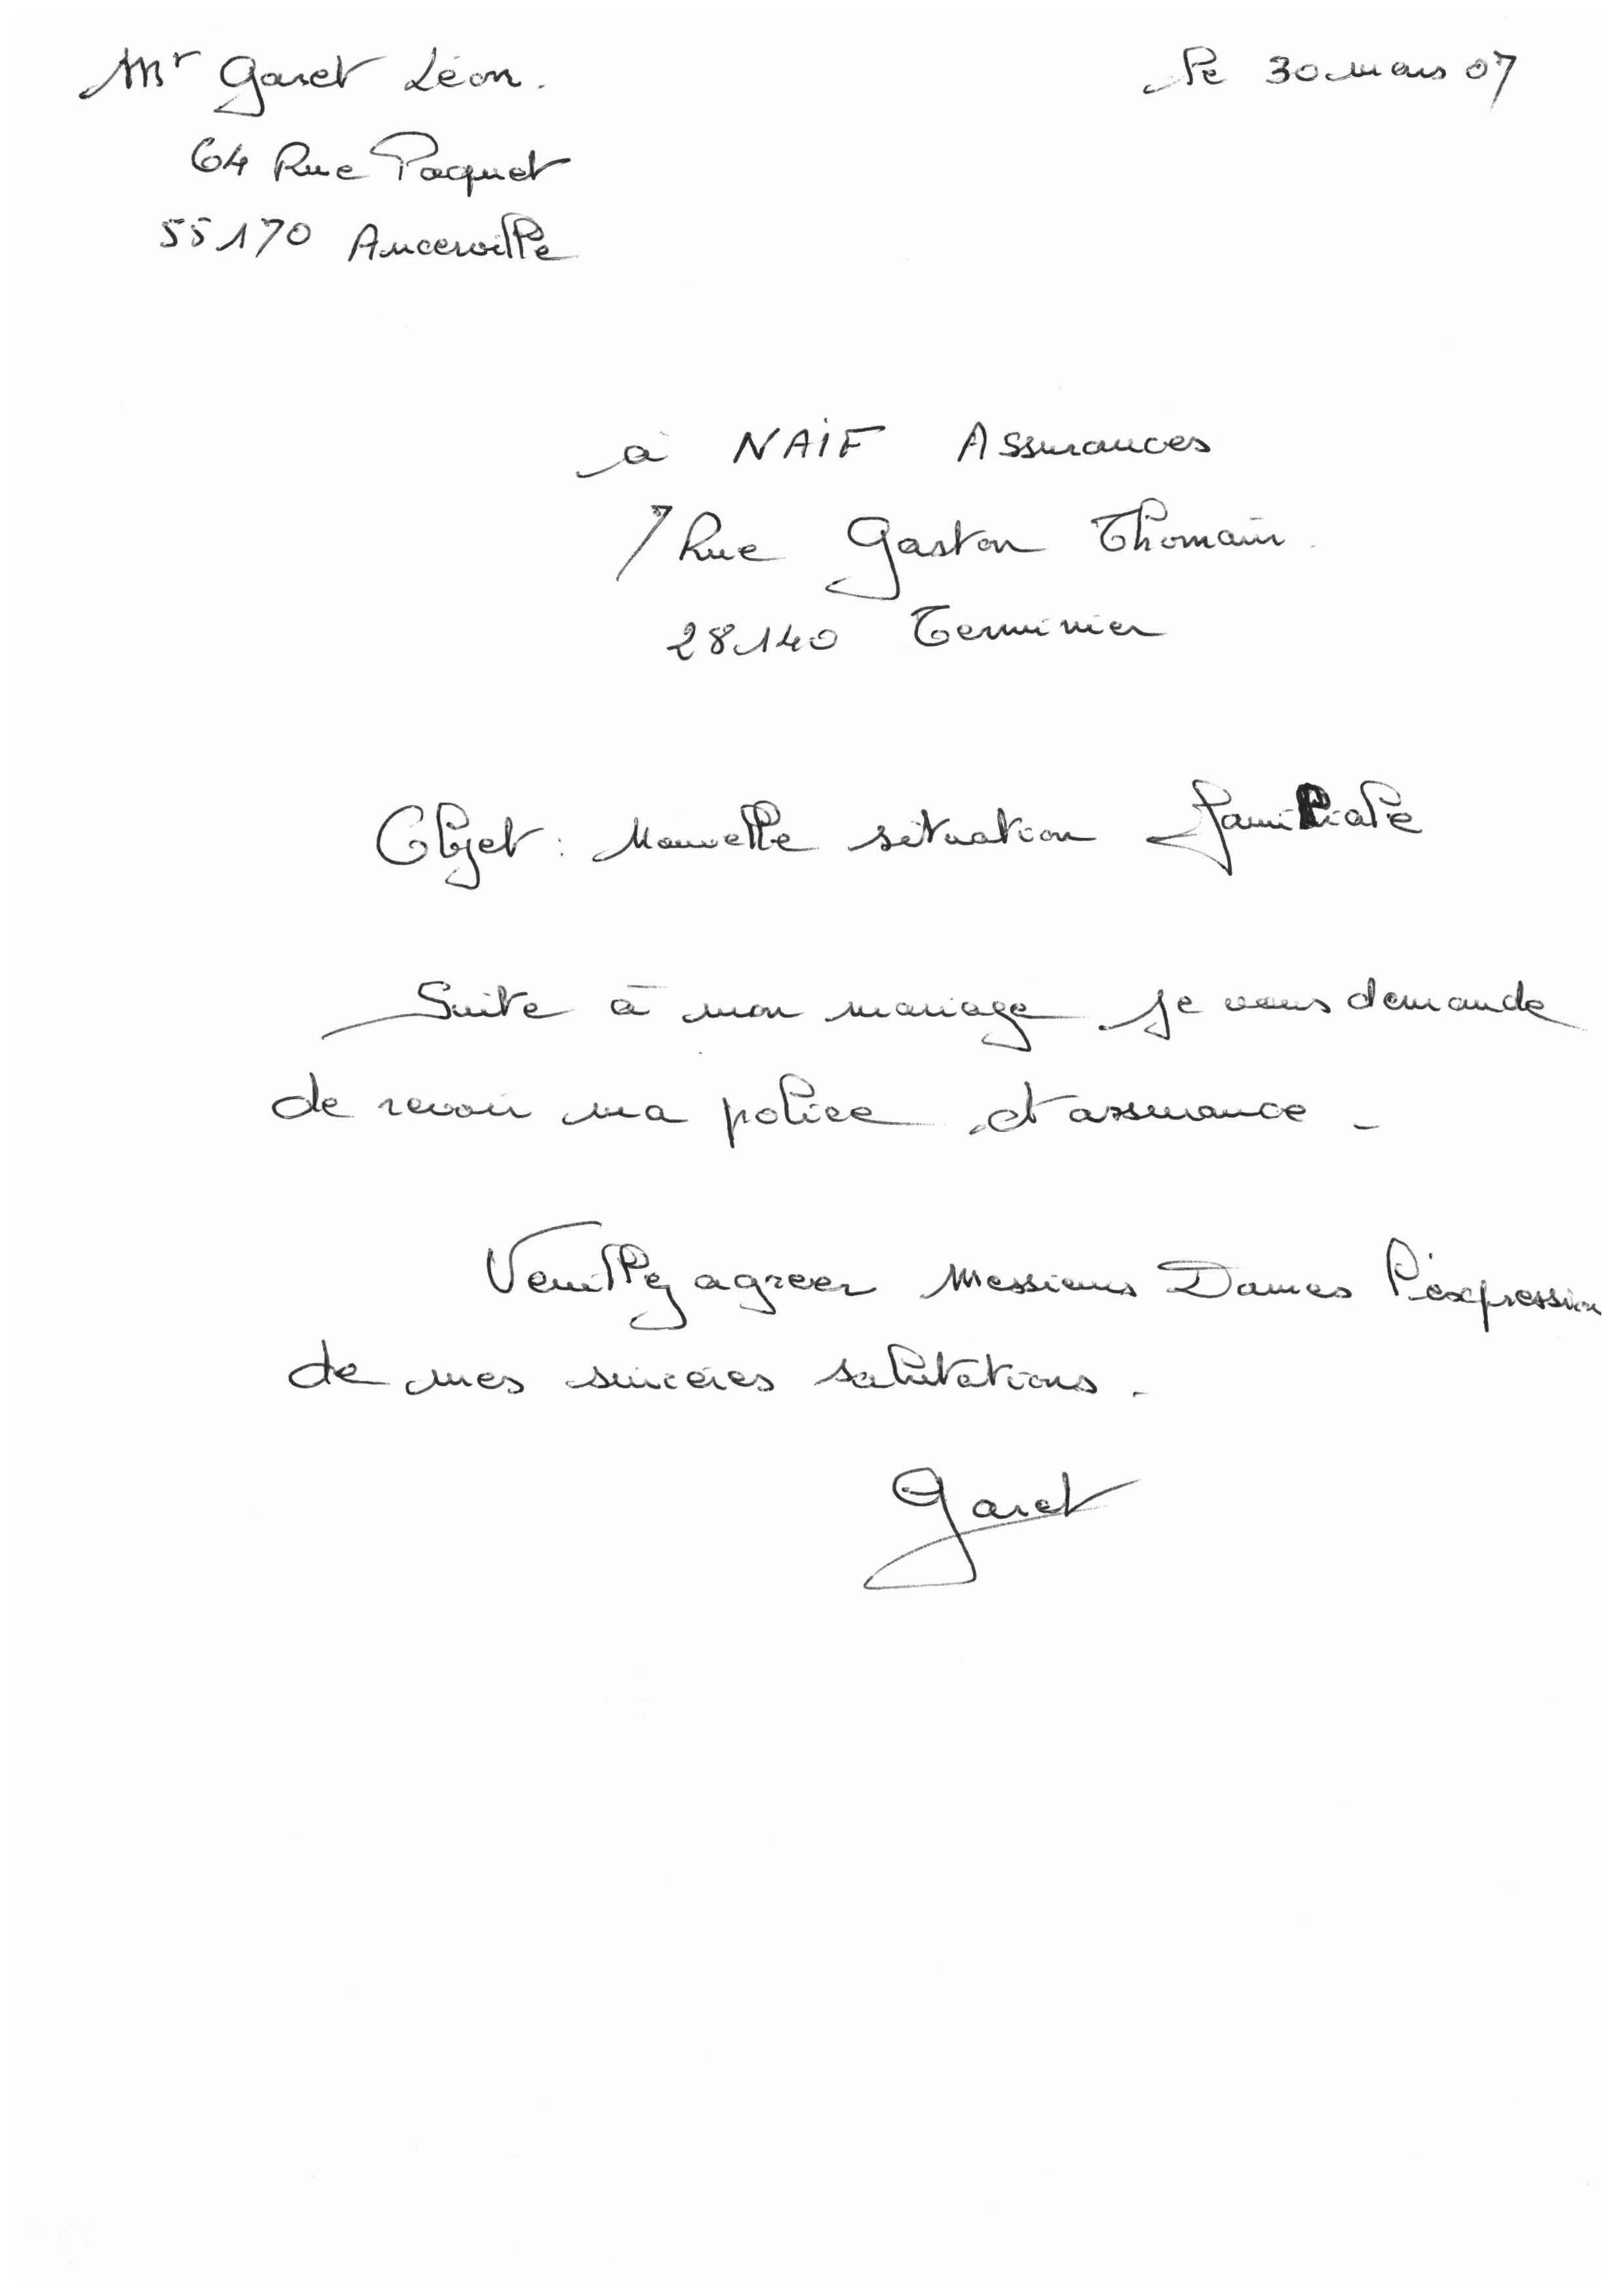 Mr Garet Léon.
le 30 mars 07
64 Rue Paquet
55170 Ancerville
à NAiF Assurances
7 Rue Gaston Thomain
28140 Terminier
Objet : Nouvelle situation familiale
Suite à mon mariage je vous demande
de revoir ma police d'assurance.
Veuillez agreer Messieurs Dames l'éxpression
de mes sincères salutations.
Garet